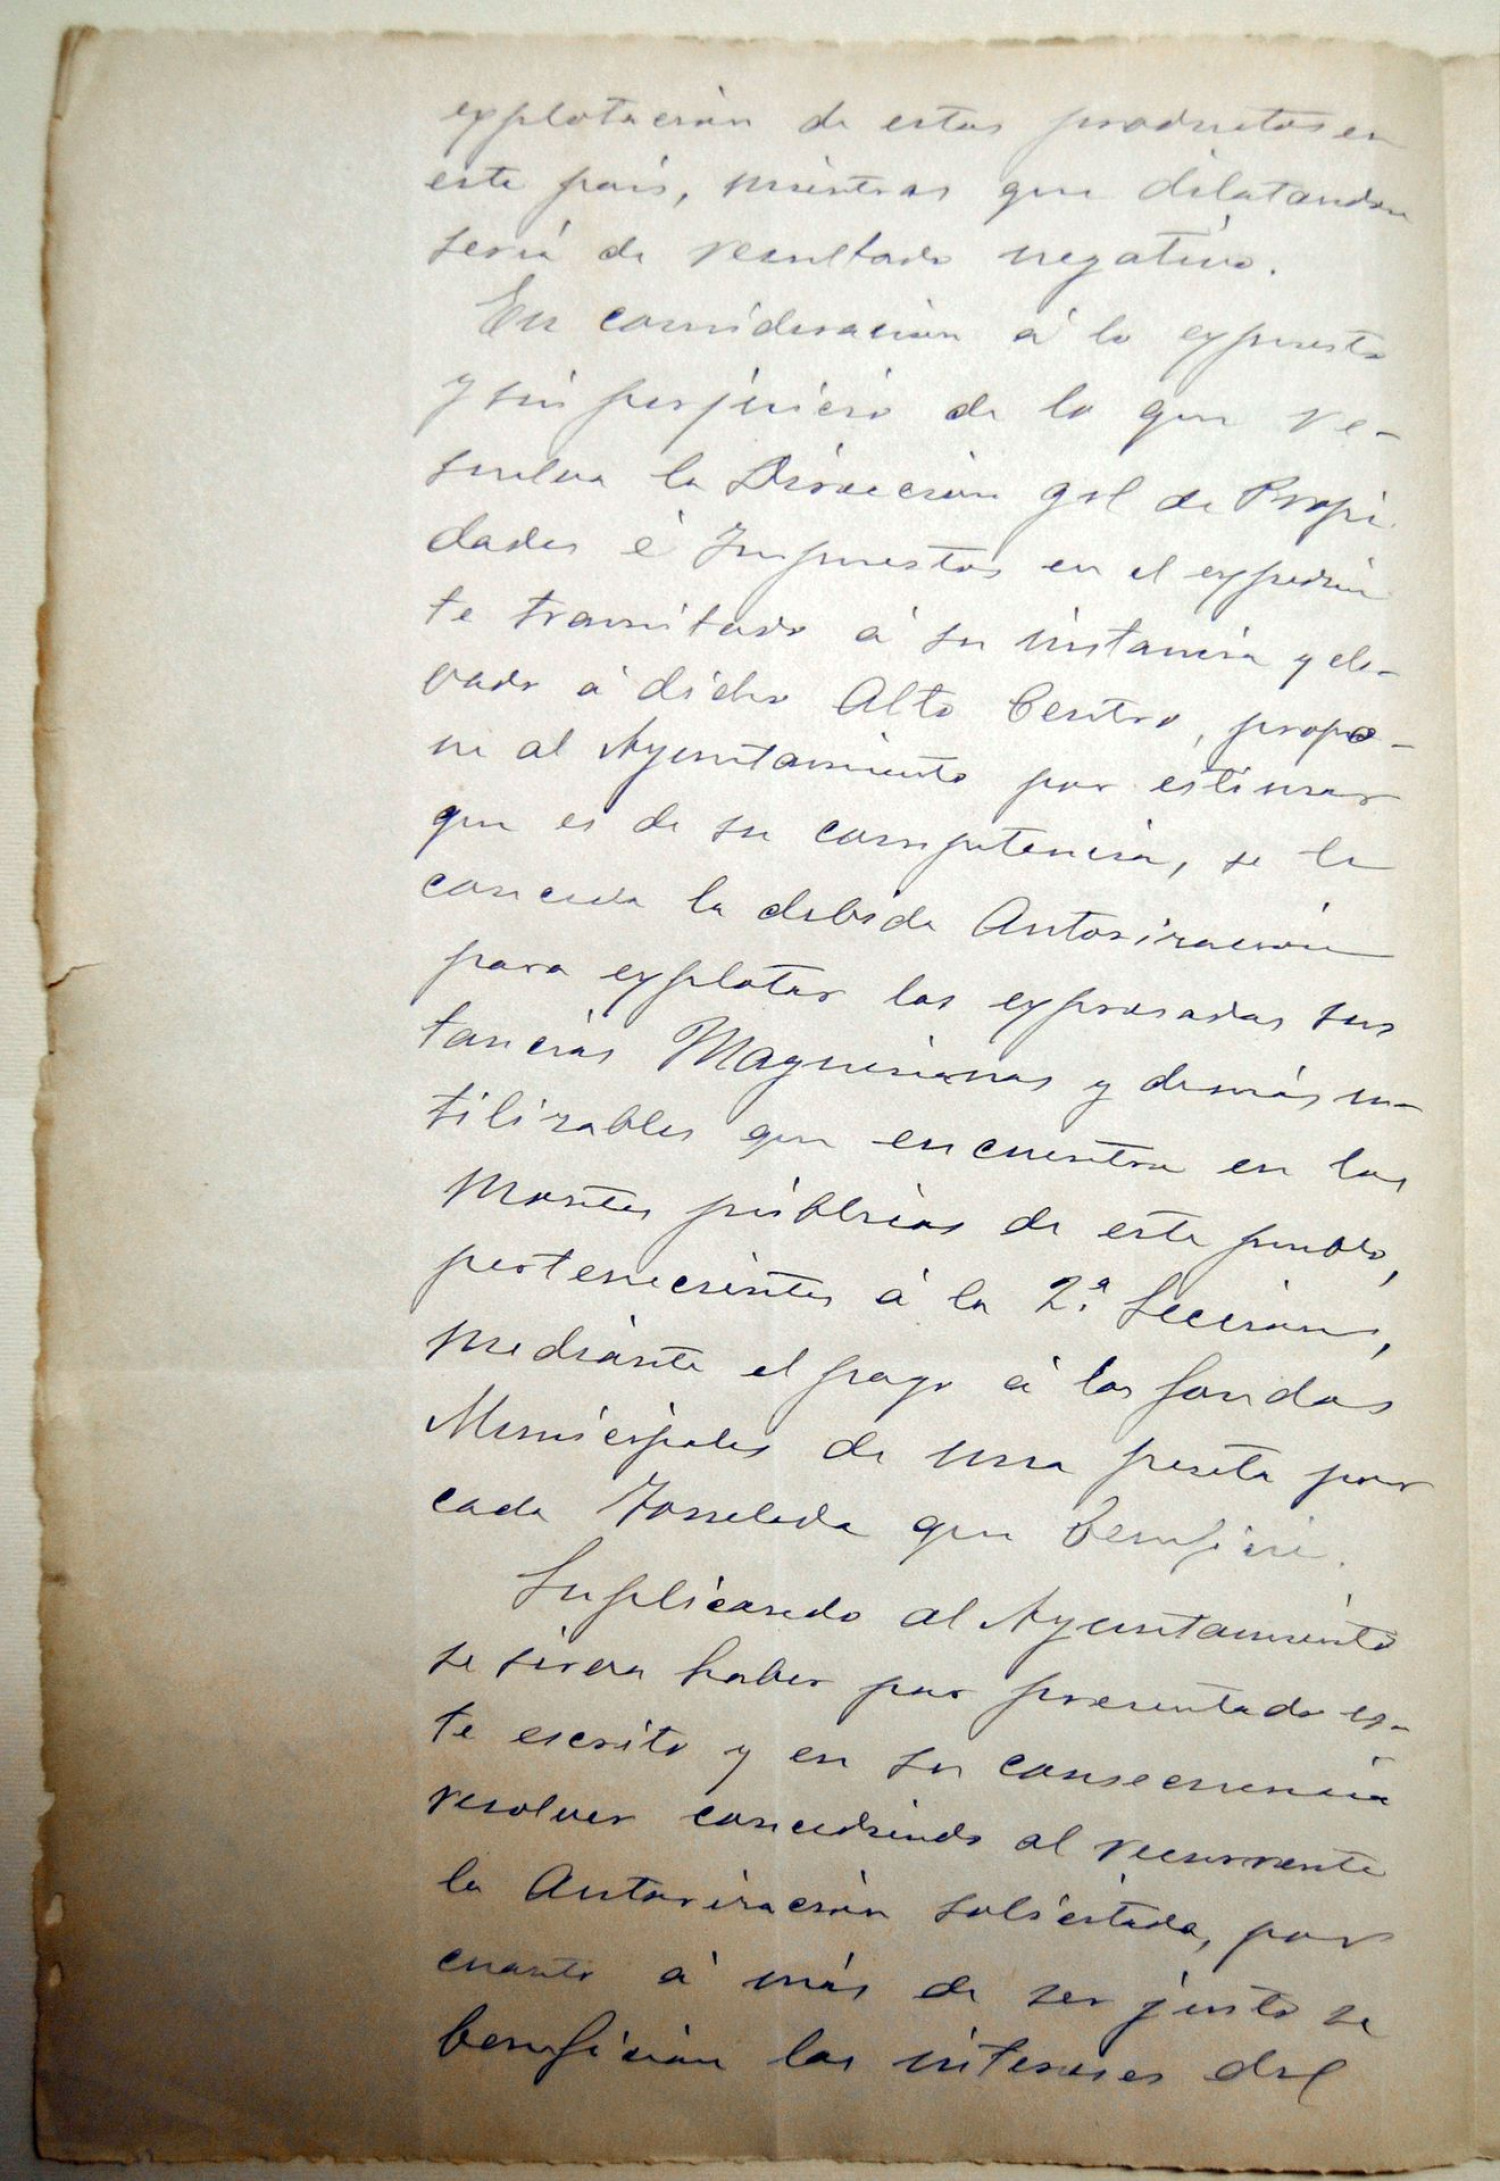 explotación de estos productos en
este pais, mientras que dilatandose
seria de resultado negativo.
En consideración á lo expuesto
y sin perjuicio de lo que re-
suelva la Dirección gral de Propie
dades é Impuestos en el expedien
te tramitado á su instancia y ele-
vado á dicho Alto Centro, propo-
ne al Ayuntamiento por estimar
que es de su competencia, se le
conceda la debida Autorización
para explotar las expresadas sus
tancias Magnesianas y demás u-
tilizables que encuentre en los
Montes públicos de este pueblo,
pertenecientes á la 2.ª Sección,
mediante el pago á los fondos
Municipales de una peseta por
cada Tonelada que beneficie.
Suplicando al Ayuntamiento
se sirva haber por presentado es-
te escrito y en su consecuencia
resolver concediendo al recurrente
la Autorización solicitada, por
cuanto á más de ser justo se
benefician los intereses del